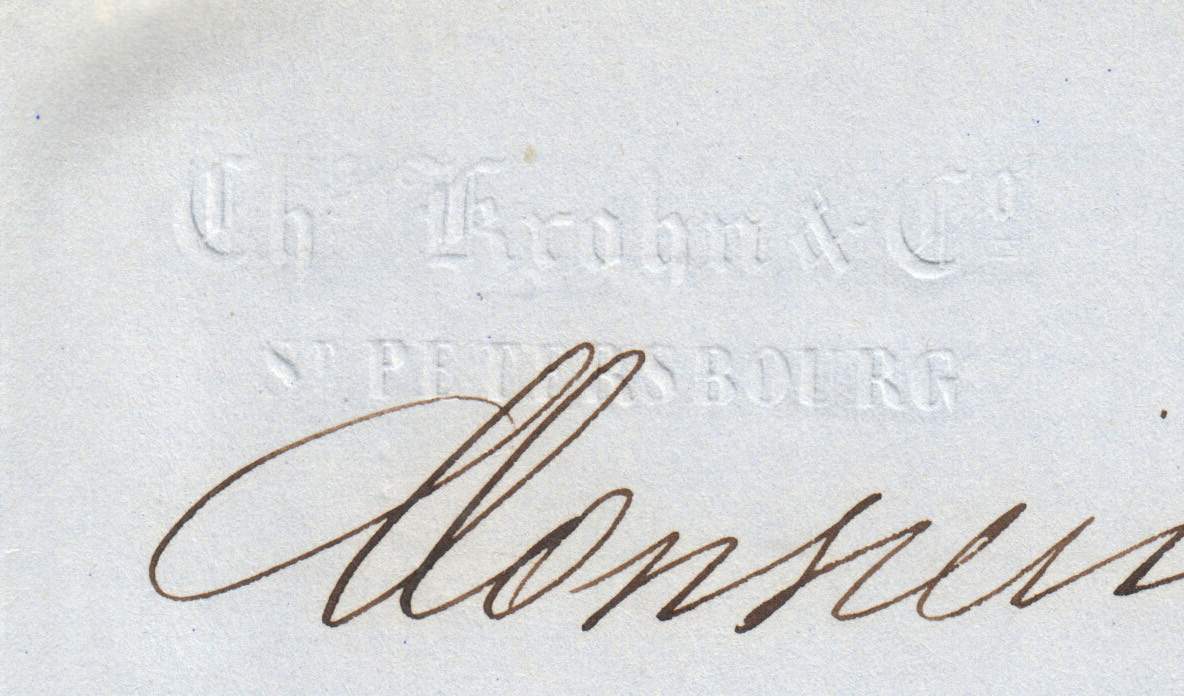 Chs Krohn & Co
St PETERSBOURG
Monsieur